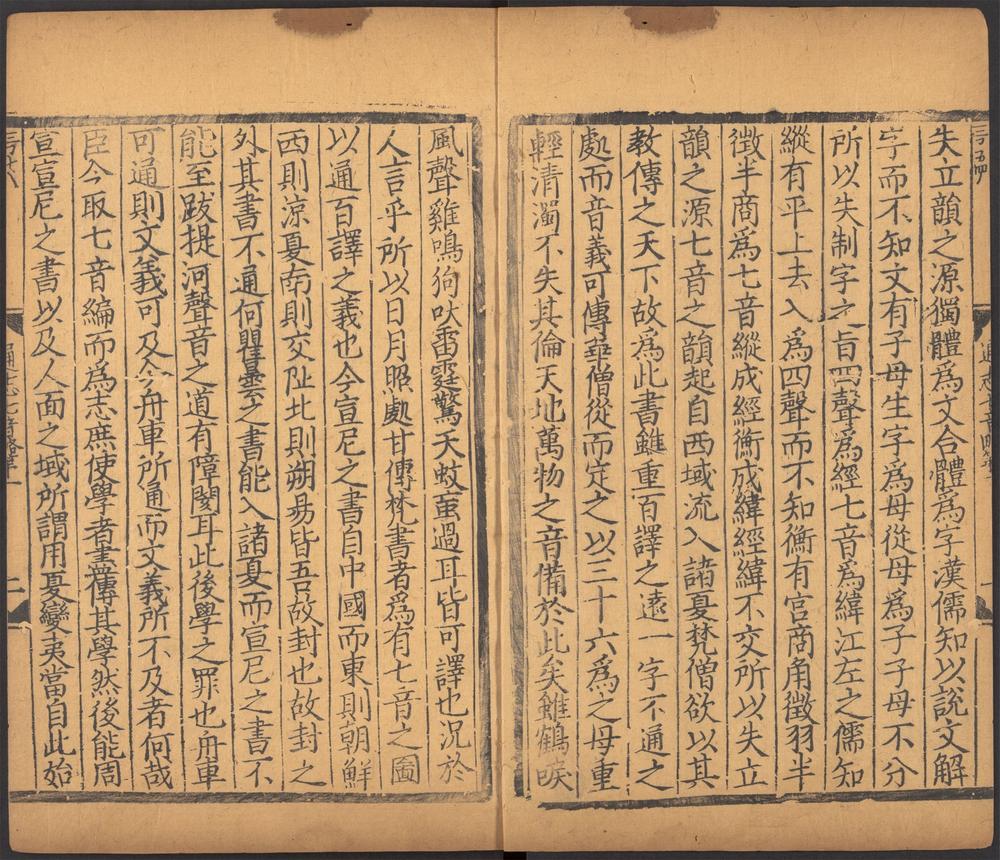 失立韻之源獨體爲文合體爲字漢儒知以說文解
字而不知文有子母生字爲母從母爲子子母不分
所以失制字之旨四聲爲經七音爲緯江左之儒知
縱有平上去入爲四聲而不知衡有宮商角徵羽半
徵半商爲七音縱成經衡成緯經緯不交所以失立
韻之源七音之韻起自西域流入諸夏梵僧欲以其
教傳之天下故爲此書雖重百譯之遠一字不通之
處而音義可傳華僧從而定之以三十六爲之母重
輕清濁不失其倫天地萬物之音備於此矣雖鶴唳
風聲雞鳴狗吠雷霆驚天蚊䖟過耳皆可譯也況於
人言乎所以日月照處甘傳梵書者爲有七音之圖
以通百譯之義也今宣尼之書自中國而東則朝鮮
西則涼夏南則交阯北則朔易皆吾故封也故封之
外其書不通何瞿曇之書能入諸夏而宣尼之書不
能至跋提河聲音之道有障閡耳此後學之罪也舟車
可通則文義可及今舟車所通而文義所不及者何哉
臣今取七音編而爲志庶使學者盡傳其學然後能周
宣宣尼之書以及人面之域所謂用夏變夷當自此始